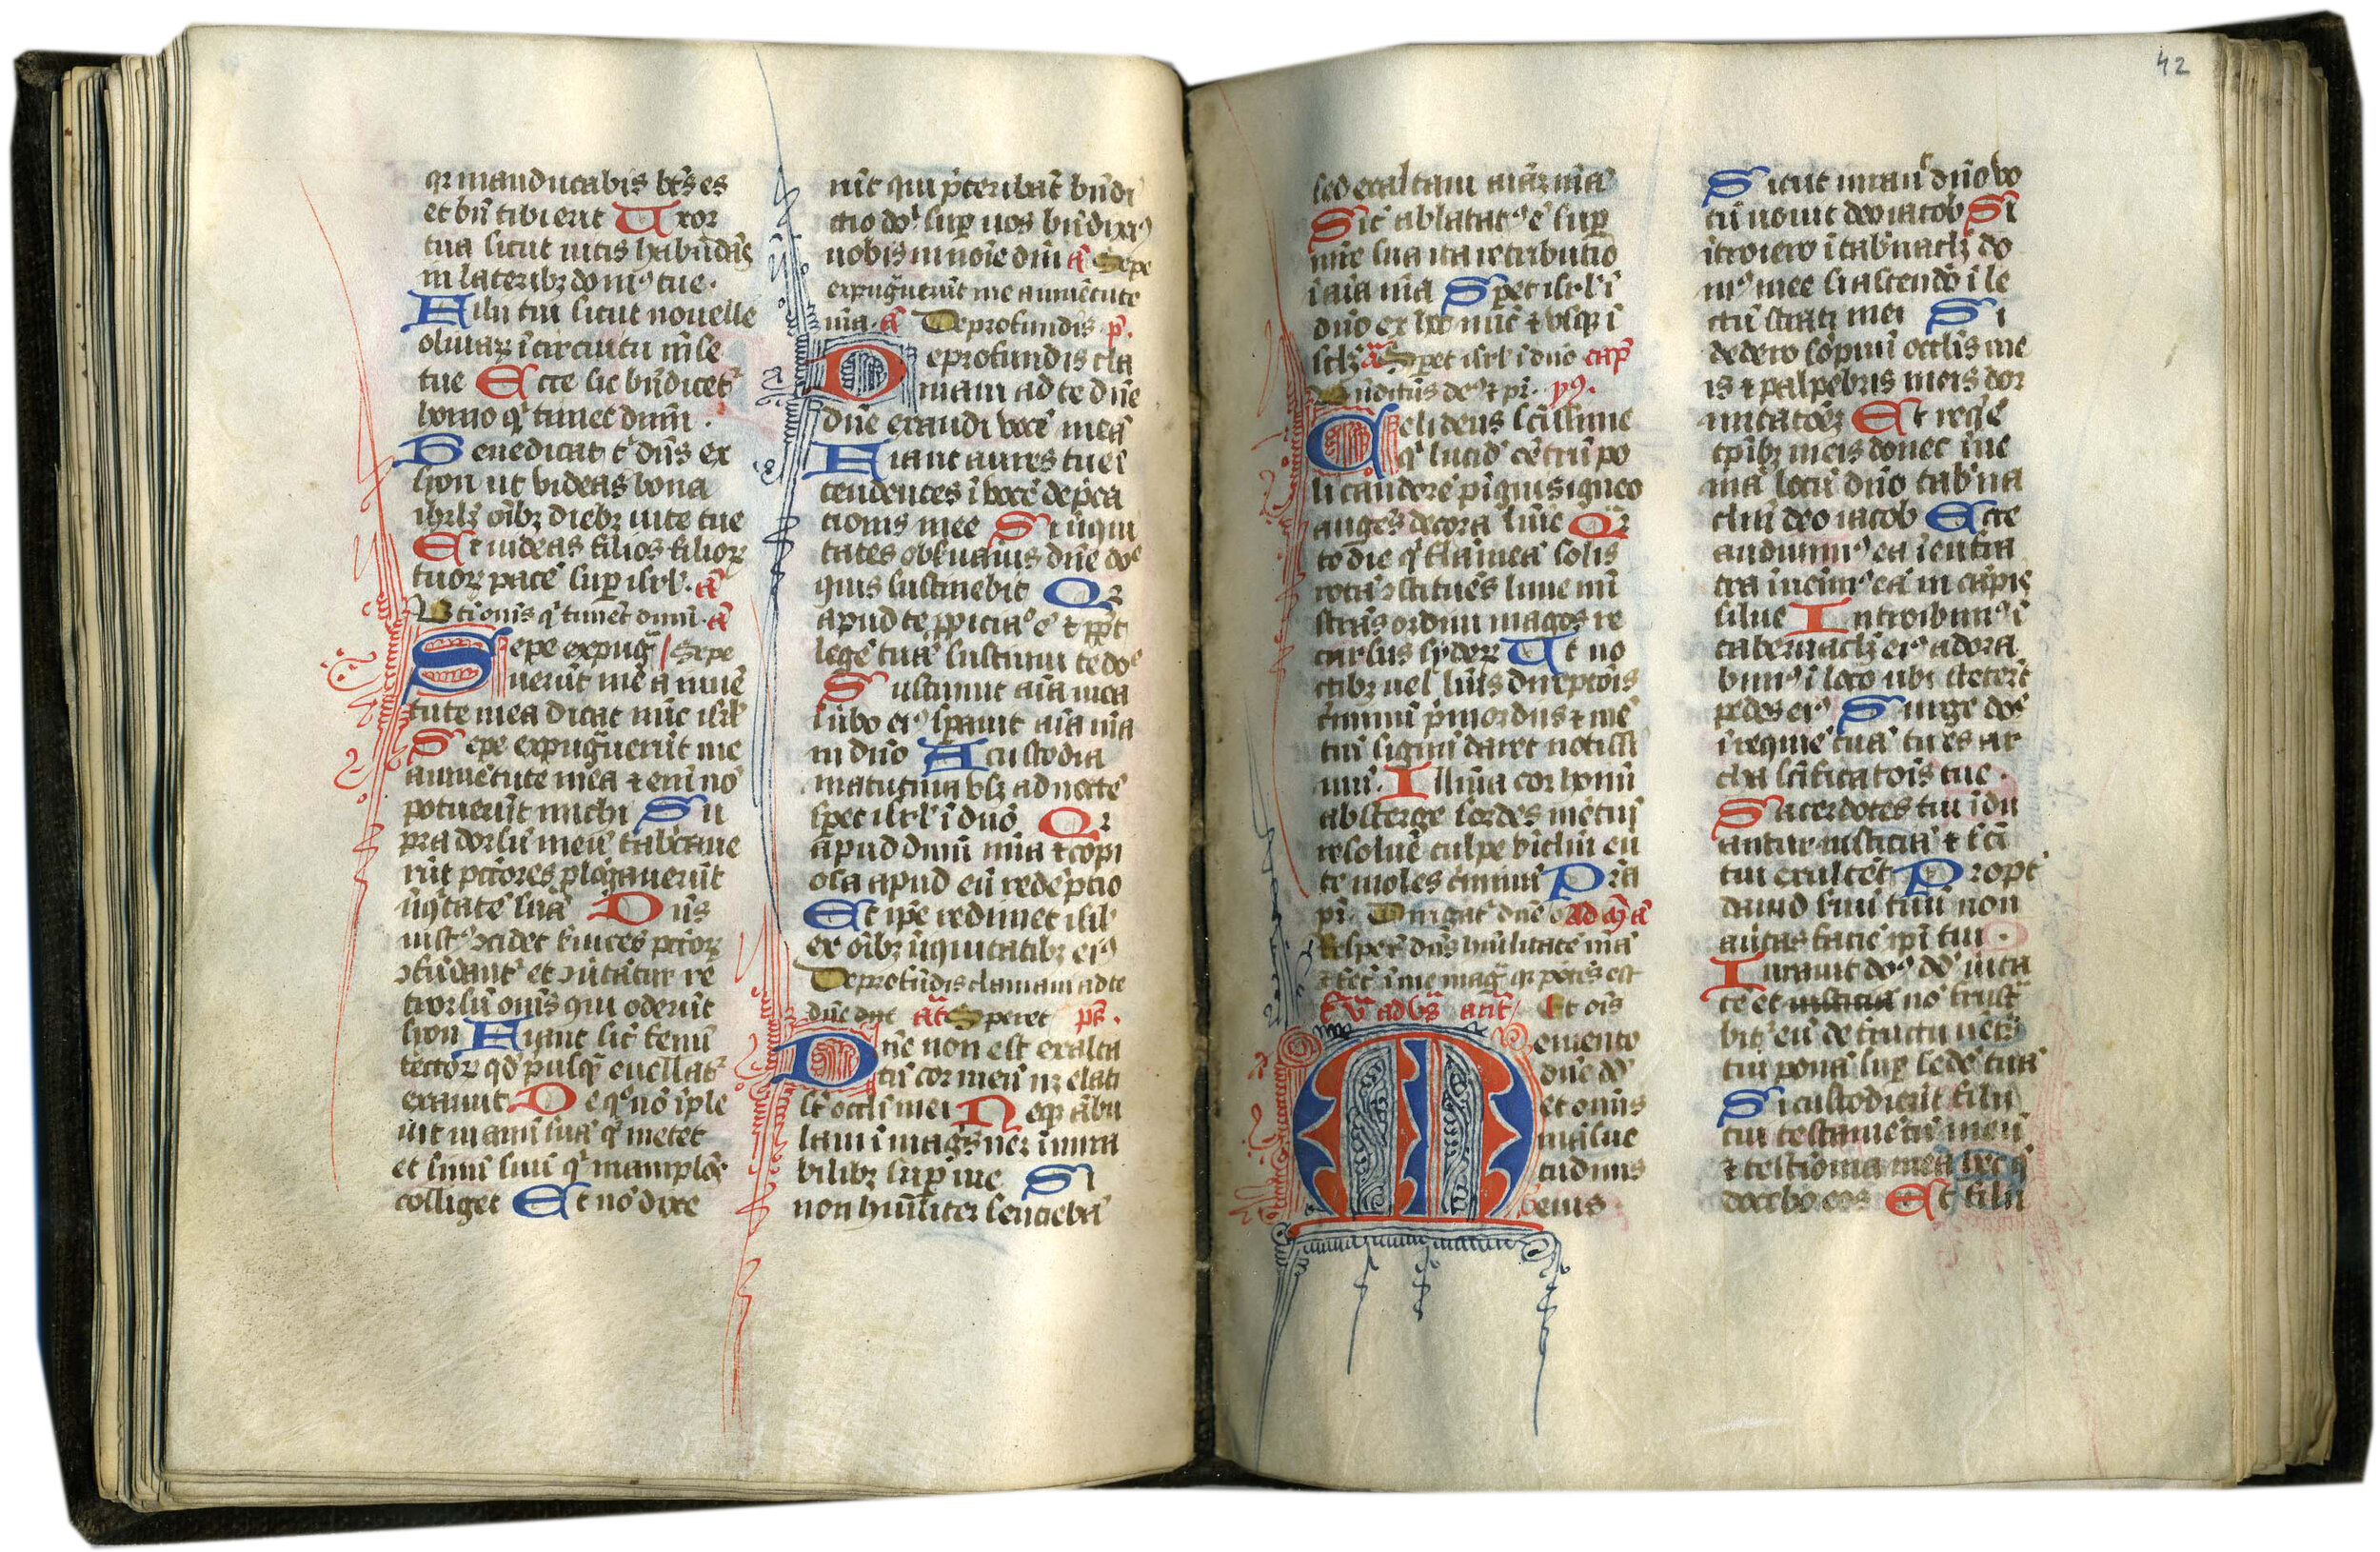 qr manducabis btūs es
et bn̄ tibi erit Uxor
tua sicut vitis habūdās
in laterib; dom⁹ tue.
Filii tui sicut nouelle
oliuaꝝ ī circuitu mēse
tue Ecce sic bn̄dicet᷑
homo qͥ timet dn̄m.
Benedicat tͥ dn̄s ex
syon ut videas bona
ihrl̄z oīb; dieb; uite tue
Et uideas filios filioꝝ
tuoꝝ pacē sup̄ isrl̄. an̄
Vt ionis qͥ timēt dn̄m. an̄
Sepe expuḡ Sepe
uerūt me a iuuē
tute mea dicat nūc isrl̄
Sepe expuḡuerūt me
a iuuētute mea ⁊ enī nō
potuerūt michi Su
pra dorsū meū fab̄caue
rūt pctōres ꝓlōgauerūt
īiqͥtatē suā Dn̄s
iust⁹ ꝯcidet ceruices pctōꝝ
ꝯfūdant᷑ et ꝯuertātur re
trorsū om̄s qui oderūt
syon Fiant sic̄ fenū
tectoꝝ qd̄ pusqͣ euellat᷑
exaruit De qͦ nō īple
uit manū suā qͥ metet
et sinū suū qͥ manip̄lōs
colliget Et nō dixe
rūt qui p̄teribāt bn̄di
ctio do̅ⁱ sup̄ uos bn̄dixi⁹
uobis in noīe dn̄i an̄ Sepe
expuḡuerūt me a iuuētute
mea. an̄ De profundis p̄s.
De profundis cla
maui ad te dn̄e
dn̄e exaudi vocē meā
Fiant aures tue ī
tendentes ī vocē dep̄ca
tionis mee Si īiqui
tates obs̄uaūis dn̄e do̅ᵉ
quis sustinebit Qꝛ
apud te ꝓpiciaͦ ē ⁊ ꝓpt̄
legē tuā sustinui te do̅ᵉ
Sustinuit aīa mea
ī ūbo ei⁹ sp̄auit aīa mea
in dn̄o A custodia
matutina usq; ad noctē
sp̄et isrl̄ ī dn̄o Qꝛ
apud dn̄m mīa ⁊ copi
osa apud eū redēptio
Et ip̄e redimet isrl̄
ex oīb; īiquitatib; ei⁹
De profūdis clamaui ad te
dn̄e an̄ Speret p̄s.
Dn̄e non est exalta
tū cor meū neq; elati
st̄ occl̄i mei Neq; ābu
laui ī magīs neꝛ ī mira
bilib; sup̄ me Si
non hūiliter sentiebā
sed exaltaui aīaꝫ meā
Sic̄ ablatat⁹ ē sup̄
mr̄e sua ita retributio
ī aīa mea Sp̄et isrl̄ ī
dn̄o ex hoc nūc ⁊ usq; ī
scl̄z an̄ Sp̄et isrl̄ ī dn̄o cap̄
Bn̄dictus de⁹ ⁊ pr̄. ym⁹.
Celi deus sc̄issime
qͥ lucid cētrū po
li candore pīguis igneo
auges decora lumīe Qꝛ
to die qͥ flāmeā solis
rotā ꝯstitues lune mī
stras ordini uagos re
cursus syderꝝ Ut no
ctib; uel lūis direptōis
t̄minū p̄mordiis ⁊ mē
siū signū daret notissi
mū. Illūa cor hominū
absterge sordes mētiū
resolue culpe vīclm̄ eu
te moles criminū Pr̄a
pr̄. Dirigat᷑ dn̄e Ad M̄ an̄
Respex̄ dn̄s hūilitatē meā
⁊ fec̄ ī me maḡ qꝛ potēs est
Et ois
Memento
dn̄e dd̄
et om̄is
māsue
tudinis
eius.
Sicut iurau̅ dn̄o vo
tū vouit deo iacob Si
ītroiero ī tab̄nacl̄z do
m⁹ mee si ascendō ī le
ctū strati mei Si
dedero sōpnū occl̄is me
is ⁊ palpebris meis dor
mitatōeꝫ Et reqͥē
tp̄ib; meis donec īue
niā locū dn̄o tab̄na
clm̄ deo iacob Ecce
audiuim⁹ eā ī eufra
tra īuenim⁹ eā in cāpis
silue Introibim⁹ ī
tabernacl̄z ei⁹ adora
bim⁹ ī loco ubi stetert̄
pedes ei⁹ Surge do̅ᵉ
ī requiē tuā tu es ar
cha sc̄ificatōis tue.
Sacerdotes tui īdu
antur iusticiā ⁊ sc̄i
tui exultēt Propt̄
dauid s̄uū tuū non
au̅tas faciē xp̄i tui.
Iurauit do̅ˢ dd̄ uita
te et nō frust̄
bit᷑ eū de fructu uēt̄s
tui ponā sup̄ sedē tuā
Si custodierīt filii
tui testamētū meū
⁊ testīonia mea hec qͤ
docebo eos Et filii
42